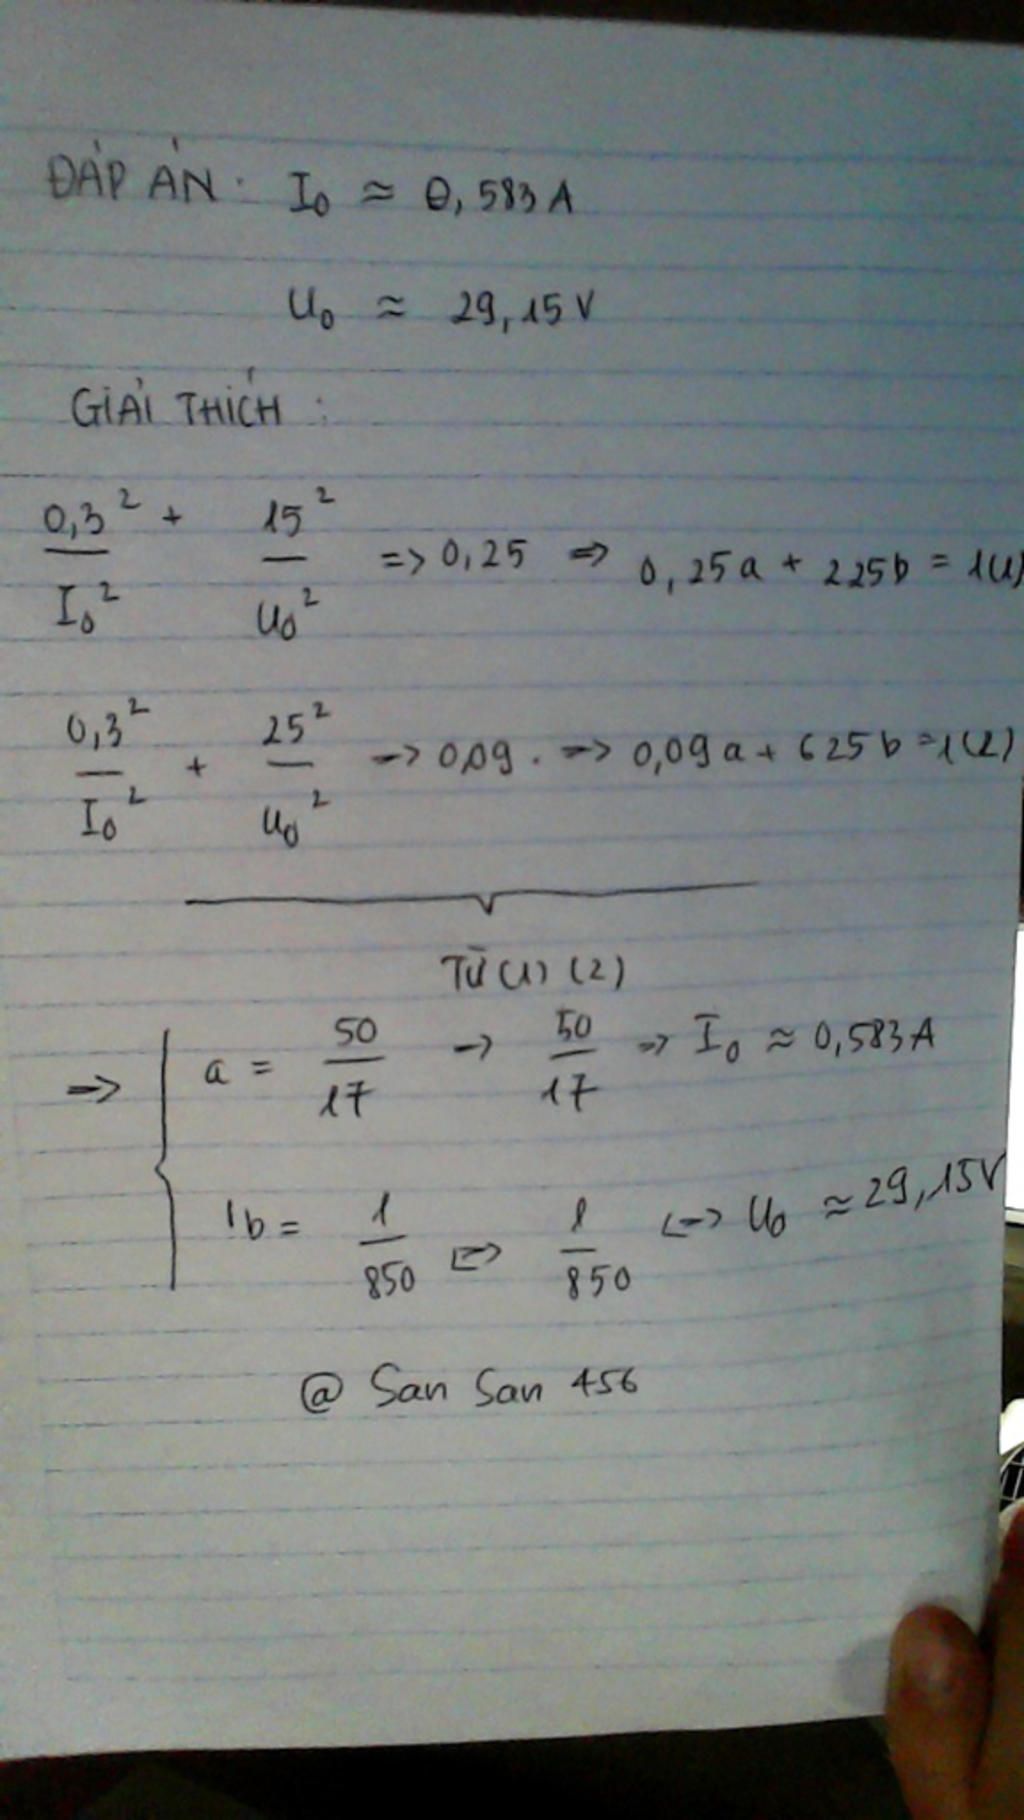 ĐÁP ÁN: I₀ ≈ 0,583A
U₀ ≈ 29,15V
GIẢI THÍCH:
0,3²/I₀² + 15²/U₀² => 0,25 => 0,25a + 225b = 1(1)
0,3²/I₀² + 25²/U₀² => 0,09. => 0,09a + 625b = 1(2)
Từ (1) (2)
=> { a = 50/17 -> 50/17 => I₀ ≈ 0,583A
b = 1/850 <=> 1/850 <=> U₀ ≈ 29,15V
@ San San 456